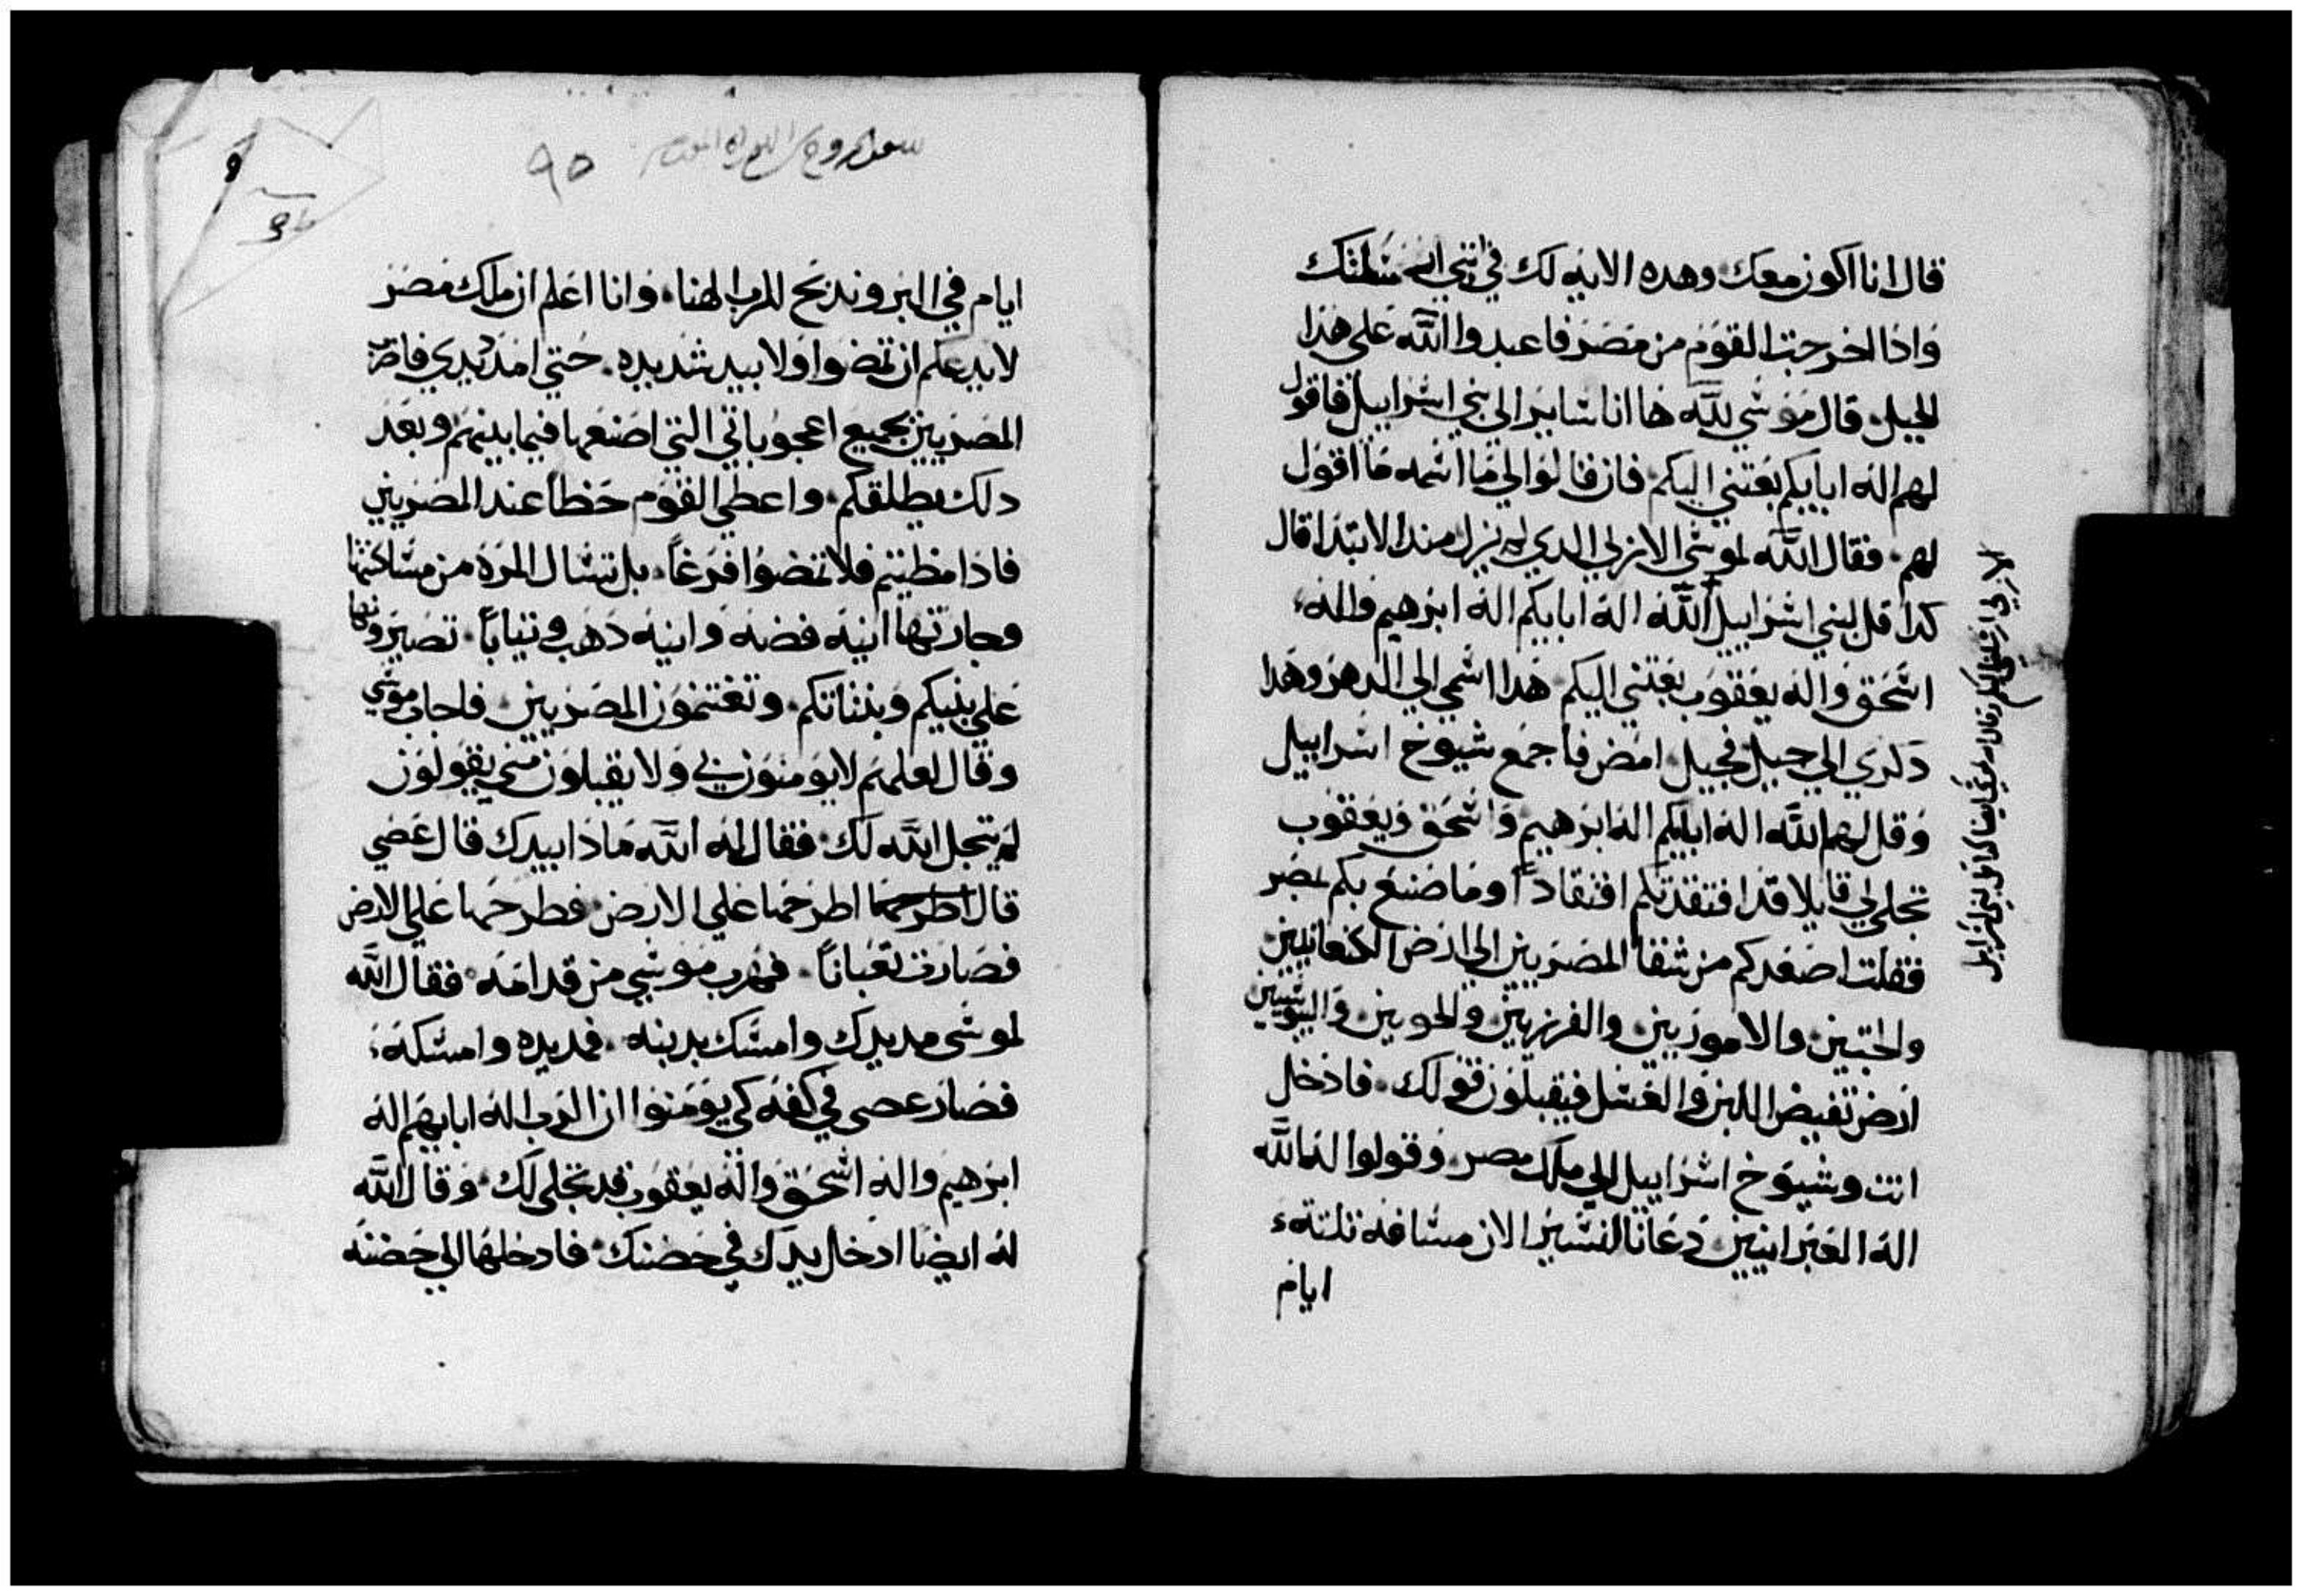 قال انا اكون معك وهده الايه لك في انني ارسلتك
واذا اخرجت القوم من مصر فاعبدوا الله على هذا
الجبل، قال موسي لله ها انا ساير الى بني اسراييل فاقول
لهم اله ابايكم بعتني اليكم، فان قالوا لي ما اسمه ما اقول
لهم، فقال الله لموسى الازلي الدي لم يزل مند الابتدا قال
كدا قل لبني اسراييل الله اله ابايكم اله ابرهيم واله
اسحق واله يعقوب بعتني اليكم، هدا اسمي الي الدهر وهدا
دكري الي جيل فجيل، امض فاجمع شيوخ اسراييل
وقل لهم الله اله ابايكم اله ابرهيم واسحق ويعقوب
تجلى لي قايلا قد افتقدتكم افتقاداً وما صنع بكم بمصر
فقلت اصعدكم من شقا المصريين الي ارض الكنعانيين
والحتيين والاموريين والفرزيين والحويين واليبوسيين
ارض تفيض اللبن والعسل فيقبلون قولك، فادخل
انت وشيوخ اسراييل الي ملك مصر، وقولوا له الله
اله العبرانيين دعانا لنسير الان مسافة تلتة
ايام
الازلي ارسلني اليكم وقال الله لموسي ايضا كدا قل لبني اسراييل
٩٥
ايام في البر وندبح للرب الهنا، وانا اعلم ان ملك مصر
لا يدعكم ان تمضوا ولا بيد شديده، حتي امد يدي فاضرب
المصريين بجميع اعجوباتي التي اصنعها فيما بينهم وبعد
دلك يطلقكم، واعطي القوم حظاً عند المصريين
فاذا مظيتم فلا تمضوا فرغاً، بل تسال المرة من مساكنتها
وجارتها انية فضه وانيه دهب وتياباً، تصيرونها
على بنيكم وبناتكم، وتغتنمون المصريين فاجاب موسي
وقال لعلهم لا يومنون بي ولا يقبلون مني يقولون
لم يتجل الله لك، فقال له الله ماذا بيدك قال عصي
قال اطرحها اطرحها علي الارض، فطرحها علي الارض
فصارت تعباناً، فهرب موسي من قدامه، فقال الله
لموسى مد يدك وامسك بدنبه، فمد يده وامسكه
فصار عصى في كفه كي يومنوا ان الرب اله ابايهم اله
ابرهيم واله اسحق واله يعقوب قد تجلى لك، وقال الله
له ايضا ادخل يدك في حضنك، فادخلها الي حضنه